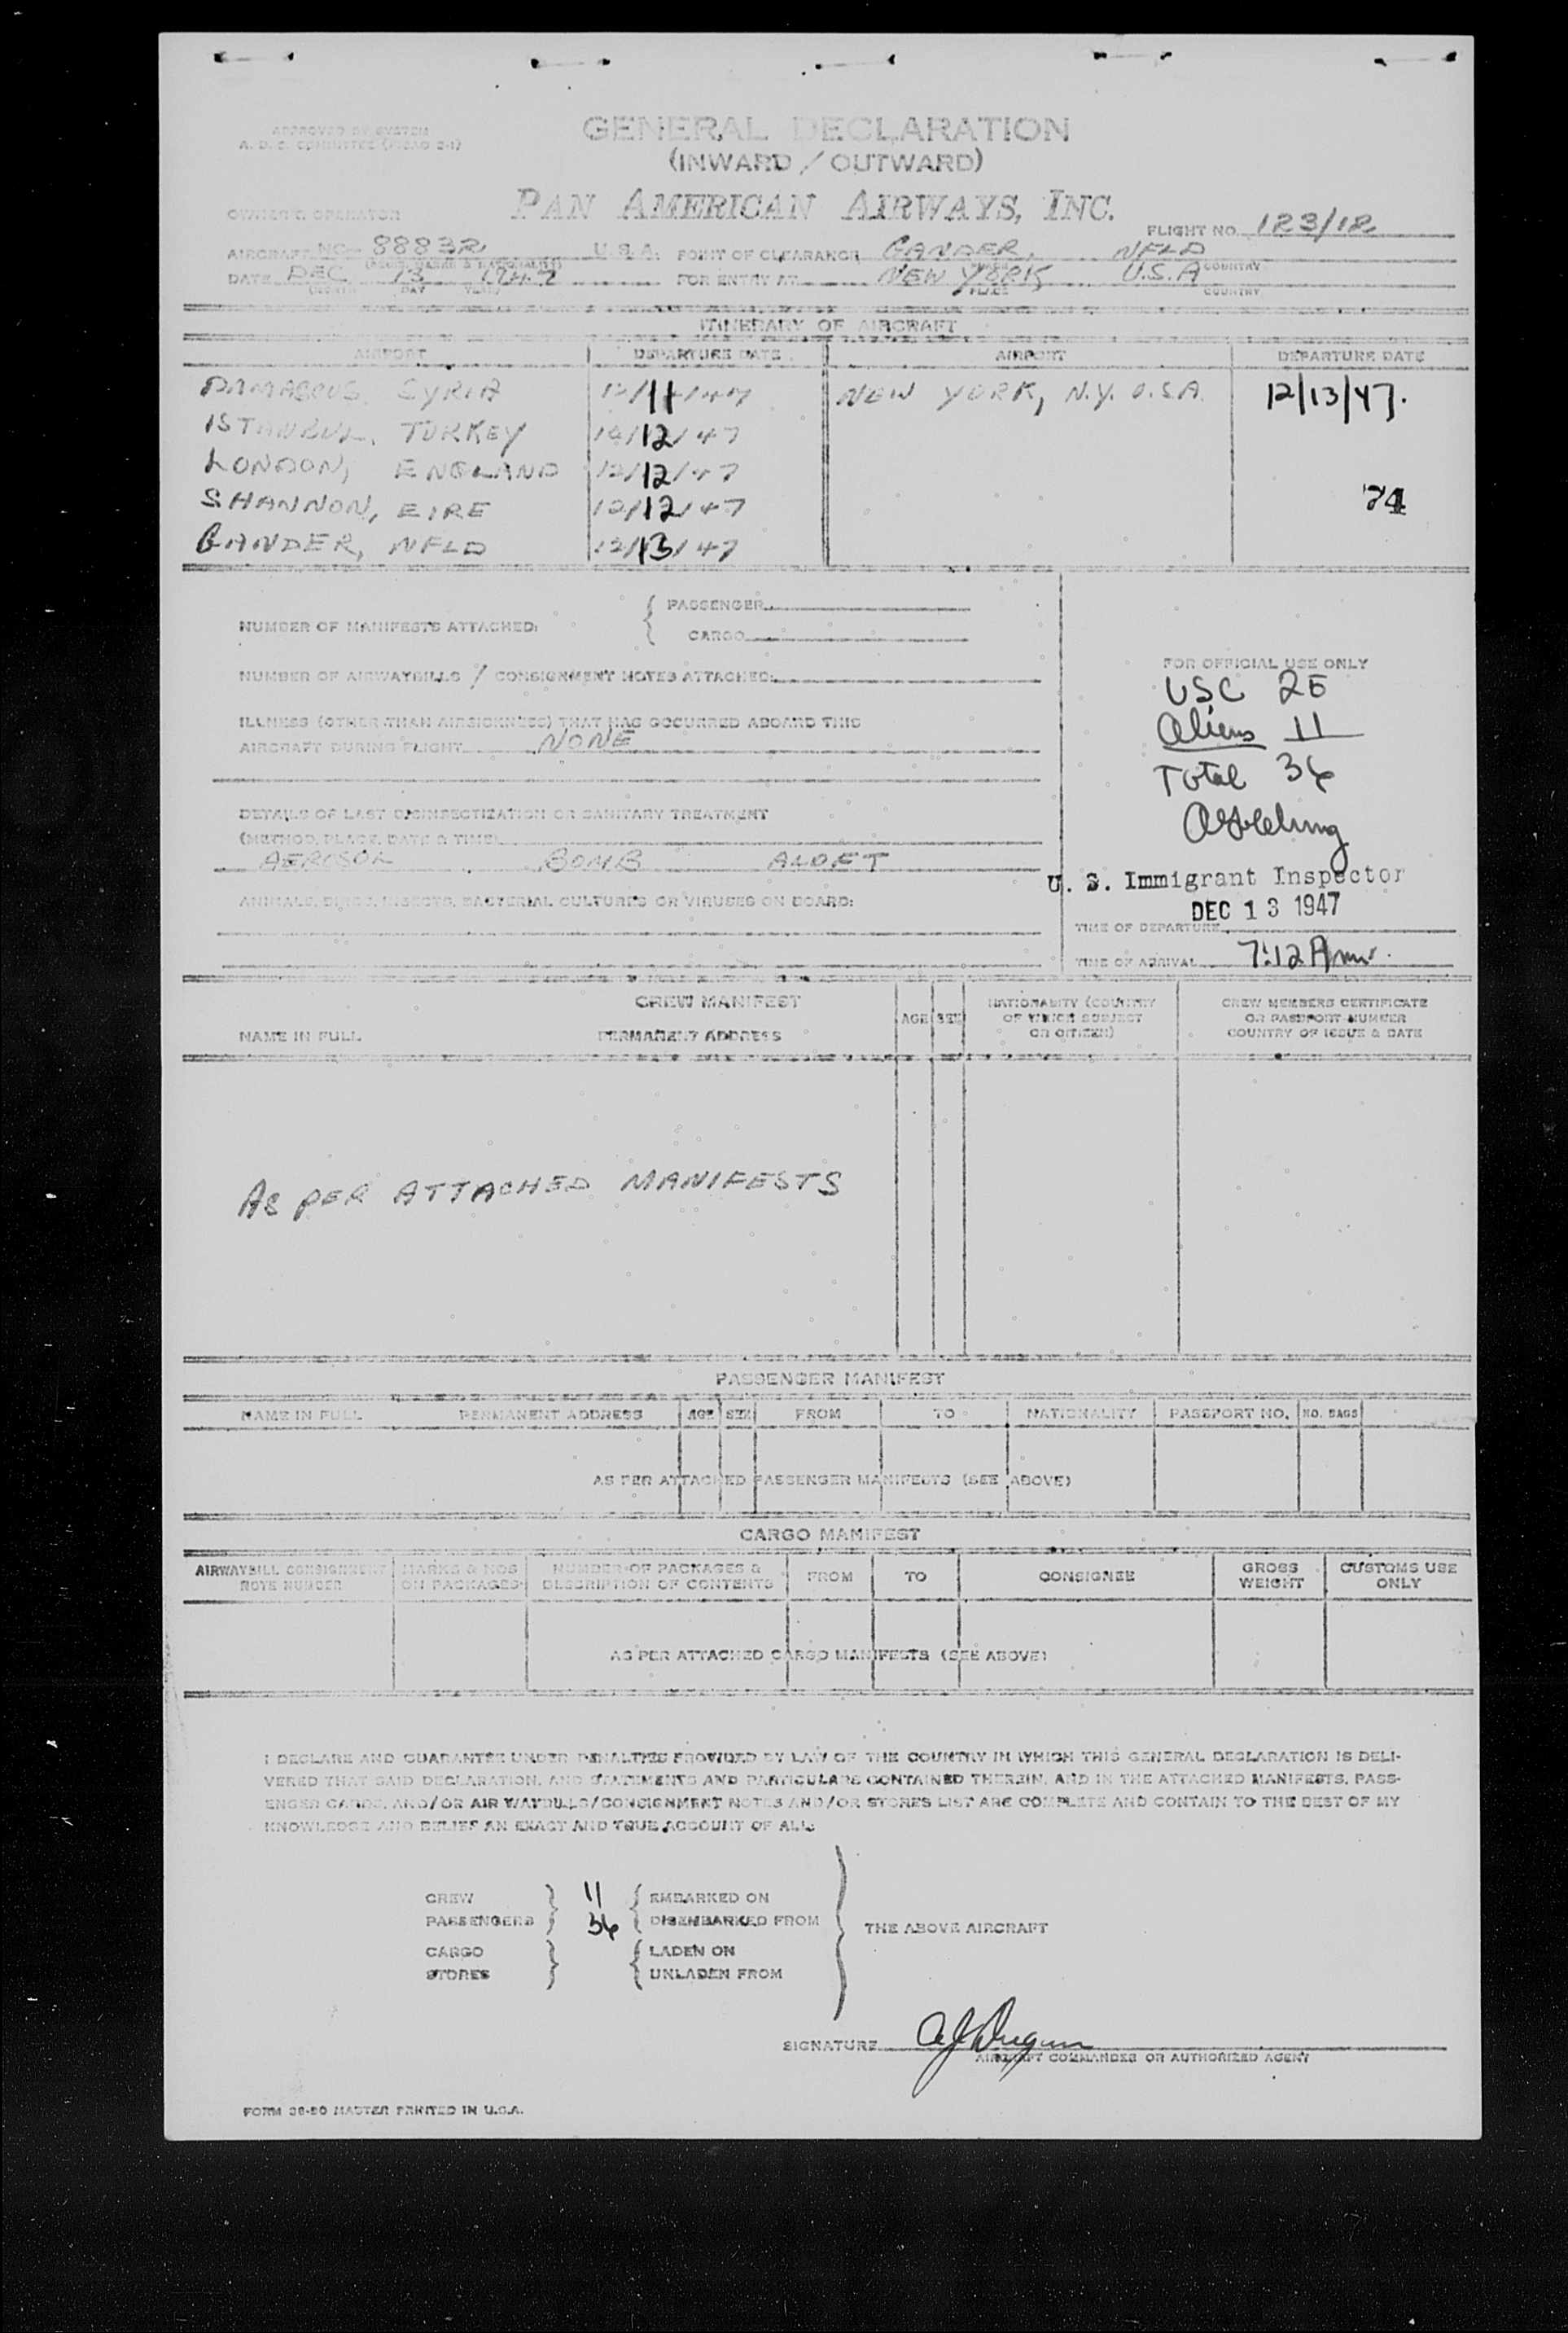 APPROVED BY SYSTEM
A. D. C. COMMITTEE
GENERAL DECLARATION
(INWARD / OUTWARD)
OWNER & OPERATOR PAN AMERICAN AIRWAYS, INC.
FLIGHT NO. 123/12
AIRCRAFT NC- 88832 U. S. A. POINT OF CLEARANCE GANDER, NFLD
COUNTRY
DATE DEC 13 1947 FOR ENTRY AT NEW YORK U.S.A
(MONTH) DAY YEAR) PLACE COUNTRY
ITINERARY OF AIRCRAFT
AIRPORT DEPARTURE DATE AIRPORT DEPARTURE DATE
DAMASCUS, SYRIA 12/11/47 NEW YORK, N.Y. U.S.A. 12/13/47.
ISTANBUL, TURKEY 12/12/47
LONDON, ENGLAND 12/12/47
SHANNON, EIRE 12/12/47 74
GANDER, NFLD 12/13/47
NUMBER OF MANIFESTS ATTACHED: { PASSENGER
{ CARGO
NUMBER OF AIRWAYBILLS / CONSIGNMENT NOTES ATTACHED:
FOR OFFICIAL USE ONLY
USC 25
Aliens 11
Total 36
ILLNESS (OTHER THAN AIRSICKNESS) THAT HAS OCCURRED ABOARD THIS
AIRCRAFT DURING FLIGHT NONE
DETAILS OF LAST DISINSECTIZATION OR SANITARY TREATMENT
(METHOD, PLACE, DATE & TIME)
AEROSOL BOMB ALOFT
U. S. Immigrant Inspector
DEC 13 1947
ANIMALS, BIRDS, INSECTS, BACTERIAL CULTURES OR VIRUSES ON BOARD:
TIME OF DEPARTURE
TIME OF ARRIVAL 7:12 Am.
CREW MANIFEST
NAME IN FULL PERMANENT ADDRESS AGE SEX NATIONALITY (COUNTRY OF WHICH SUBJECT OR CITIZEN) CREW MEMBERS CERTIFICATE OR PASSPORT NUMBER COUNTRY OF ISSUE & DATE
AS PER ATTACHED MANIFESTS
PASSENGER MANIFEST
NAME IN FULL PERMANENT ADDRESS AGE SEX FROM TO NATIONALITY PASSPORT NO. NO. BAGS
AS PER ATTACHED PASSENGER MANIFESTS (SEE ABOVE)
CARGO MANIFEST
AIRWAYBILL CONSIGNMENT NOTE NUMBER MARKS & NOS ON PACKAGES NUMBER OF PACKAGES & DESCRIPTION OF CONTENTS FROM TO CONSIGNEE GROSS WEIGHT CUSTOMS USE ONLY
AS PER ATTACHED CARGO MANIFESTS (SEE ABOVE)
I DECLARE AND GUARANTEE UNDER PENALTIES PROVIDED BY LAW OF THE COUNTRY IN WHICH THIS GENERAL DECLARATION IS DELI-
VERED THAT SAID DECLARATION, AND STATEMENTS AND PARTICULARS CONTAINED THEREIN, AND IN THE ATTACHED MANIFESTS, PASS-
ENGER CARDS, AND/OR AIR WAYBILLS/CONSIGNMENT NOTES AND/OR STORES LIST ARE COMPLETE AND CONTAIN TO THE BEST OF MY
KNOWLEDGE AND BELIEF AN EXACT AND TRUE ACCOUNT OF ALL:
CREW } 11 { EMBARKED ON
PASSENGERS } 36 { DISEMBARKED FROM
THE ABOVE AIRCRAFT
CARGO } { LADEN ON
STORES } { UNLADEN FROM
SIGNATURE AJ Dugan
AIRCRAFT COMMANDER OR AUTHORIZED AGENT
FORM 36-50 MASTER PRINTED IN U.S.A.